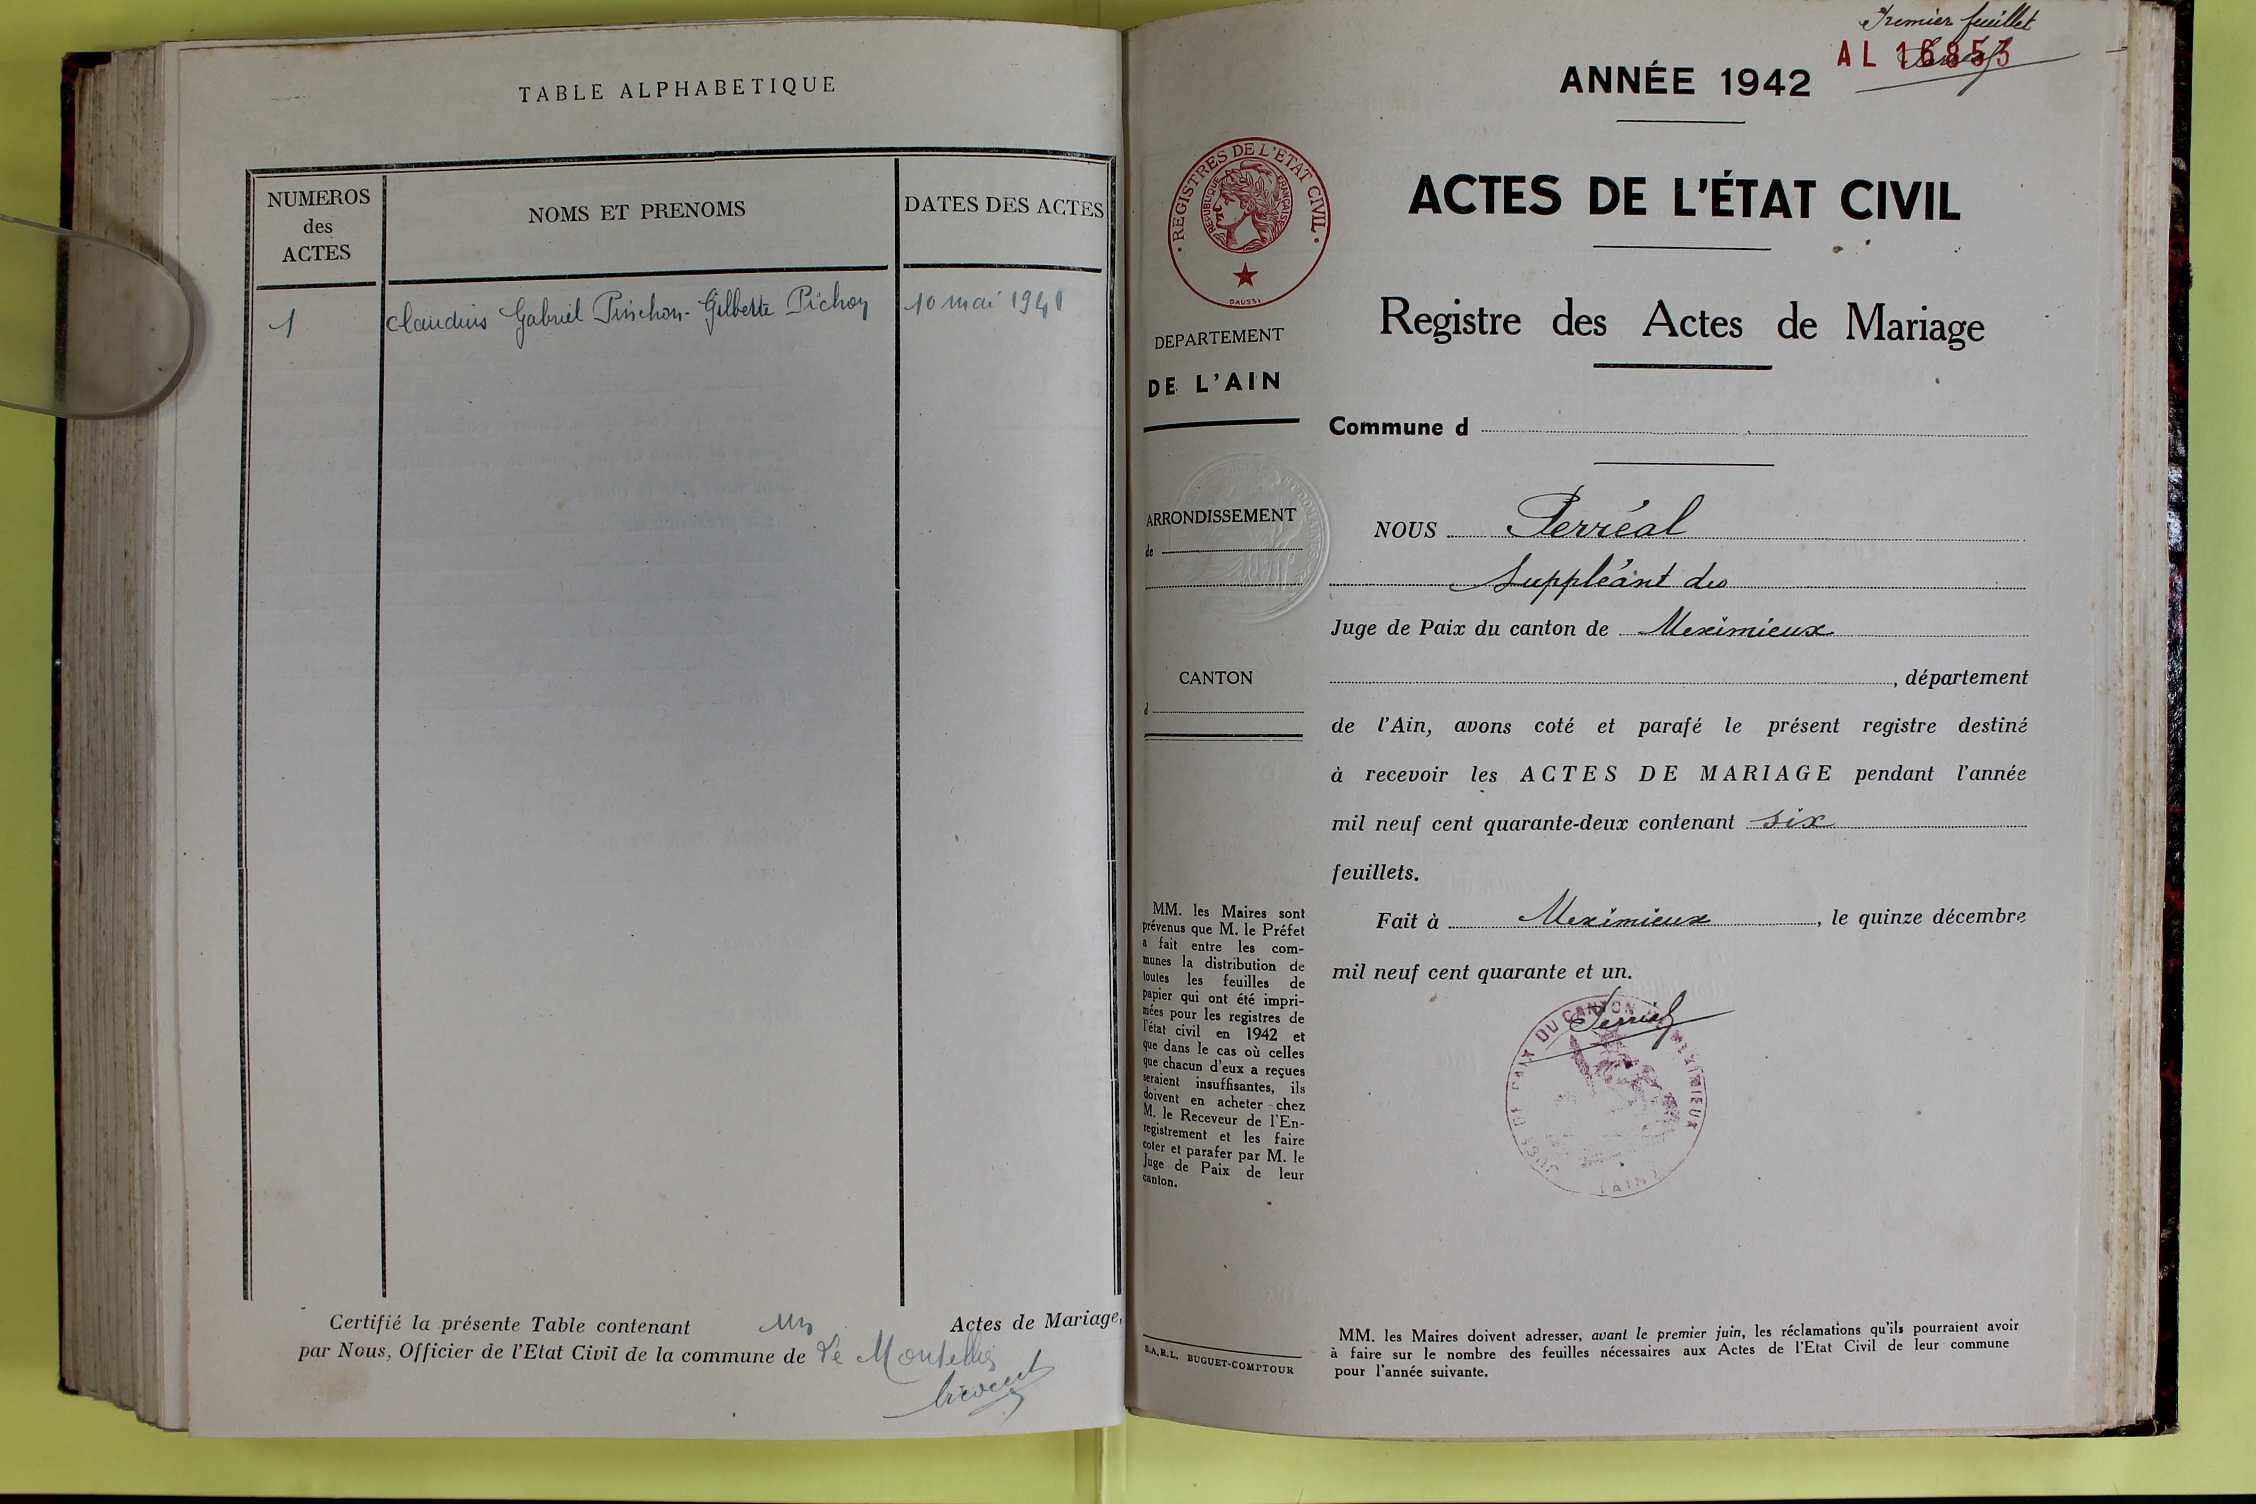 TABLE ALPHABETIQUE
NUMEROS
des
ACTES
NOMS ET PRENOMS
DATES DES ACTES
1 Claudius Gabriel Pinchon - Gilberte Pichon 10 mai 1941
Certifié la présente Table contenant un Actes de Mariage,
par Nous, Officier de l'Etat Civil de la commune de Le Montellier
Premier feuillet
AL 16853
ANNÉE 1942
ACTES DE L'ÉTAT CIVIL
Registre des Actes de Mariage
REGISTRES DE L'ETAT CIVIL
REPUBLIQUE FRANÇAISE
DAUSSI
DEPARTEMENT
DE L'AIN
ARRONDISSEMENT
de
CANTON
d
MM. les Maires sont
prévenus que M. le Préfet
a fait entre les com-
munes la distribution de
toutes les feuilles de
papier qui ont été impri-
mées pour les registres de
l'état civil en 1942 et
que dans le cas où celles
que chacun d'eux a reçues
seraient insuffisantes, ils
doivent en acheter chez
M. le Receveur de l'En-
registrement et les faire
coter et parafer par M. le
Juge de Paix de leur
canton.
S.A.R.L. BUGUET-COMPTOUR
Commune d
NOUS Perréal
Suppléant du
Juge de Paix du canton de Meximieux
, département
de l'Ain, avons coté et parafé le présent registre destiné
à recevoir les ACTES DE MARIAGE pendant l'année
mil neuf cent quarante-deux contenant six
feuillets.
Fait à Meximieux, le quinze décembre
mil neuf cent quarante et un.
Perréal
JUGE DE PAIX DU CANTON DE MEXIMIEUX
(AIN)
MM. les Maires doivent adresser, avant le premier juin, les réclamations qu'ils pourraient avoir
à faire sur le nombre des feuilles nécessaires aux Actes de l'Etat Civil de leur commune
pour l'année suivante.